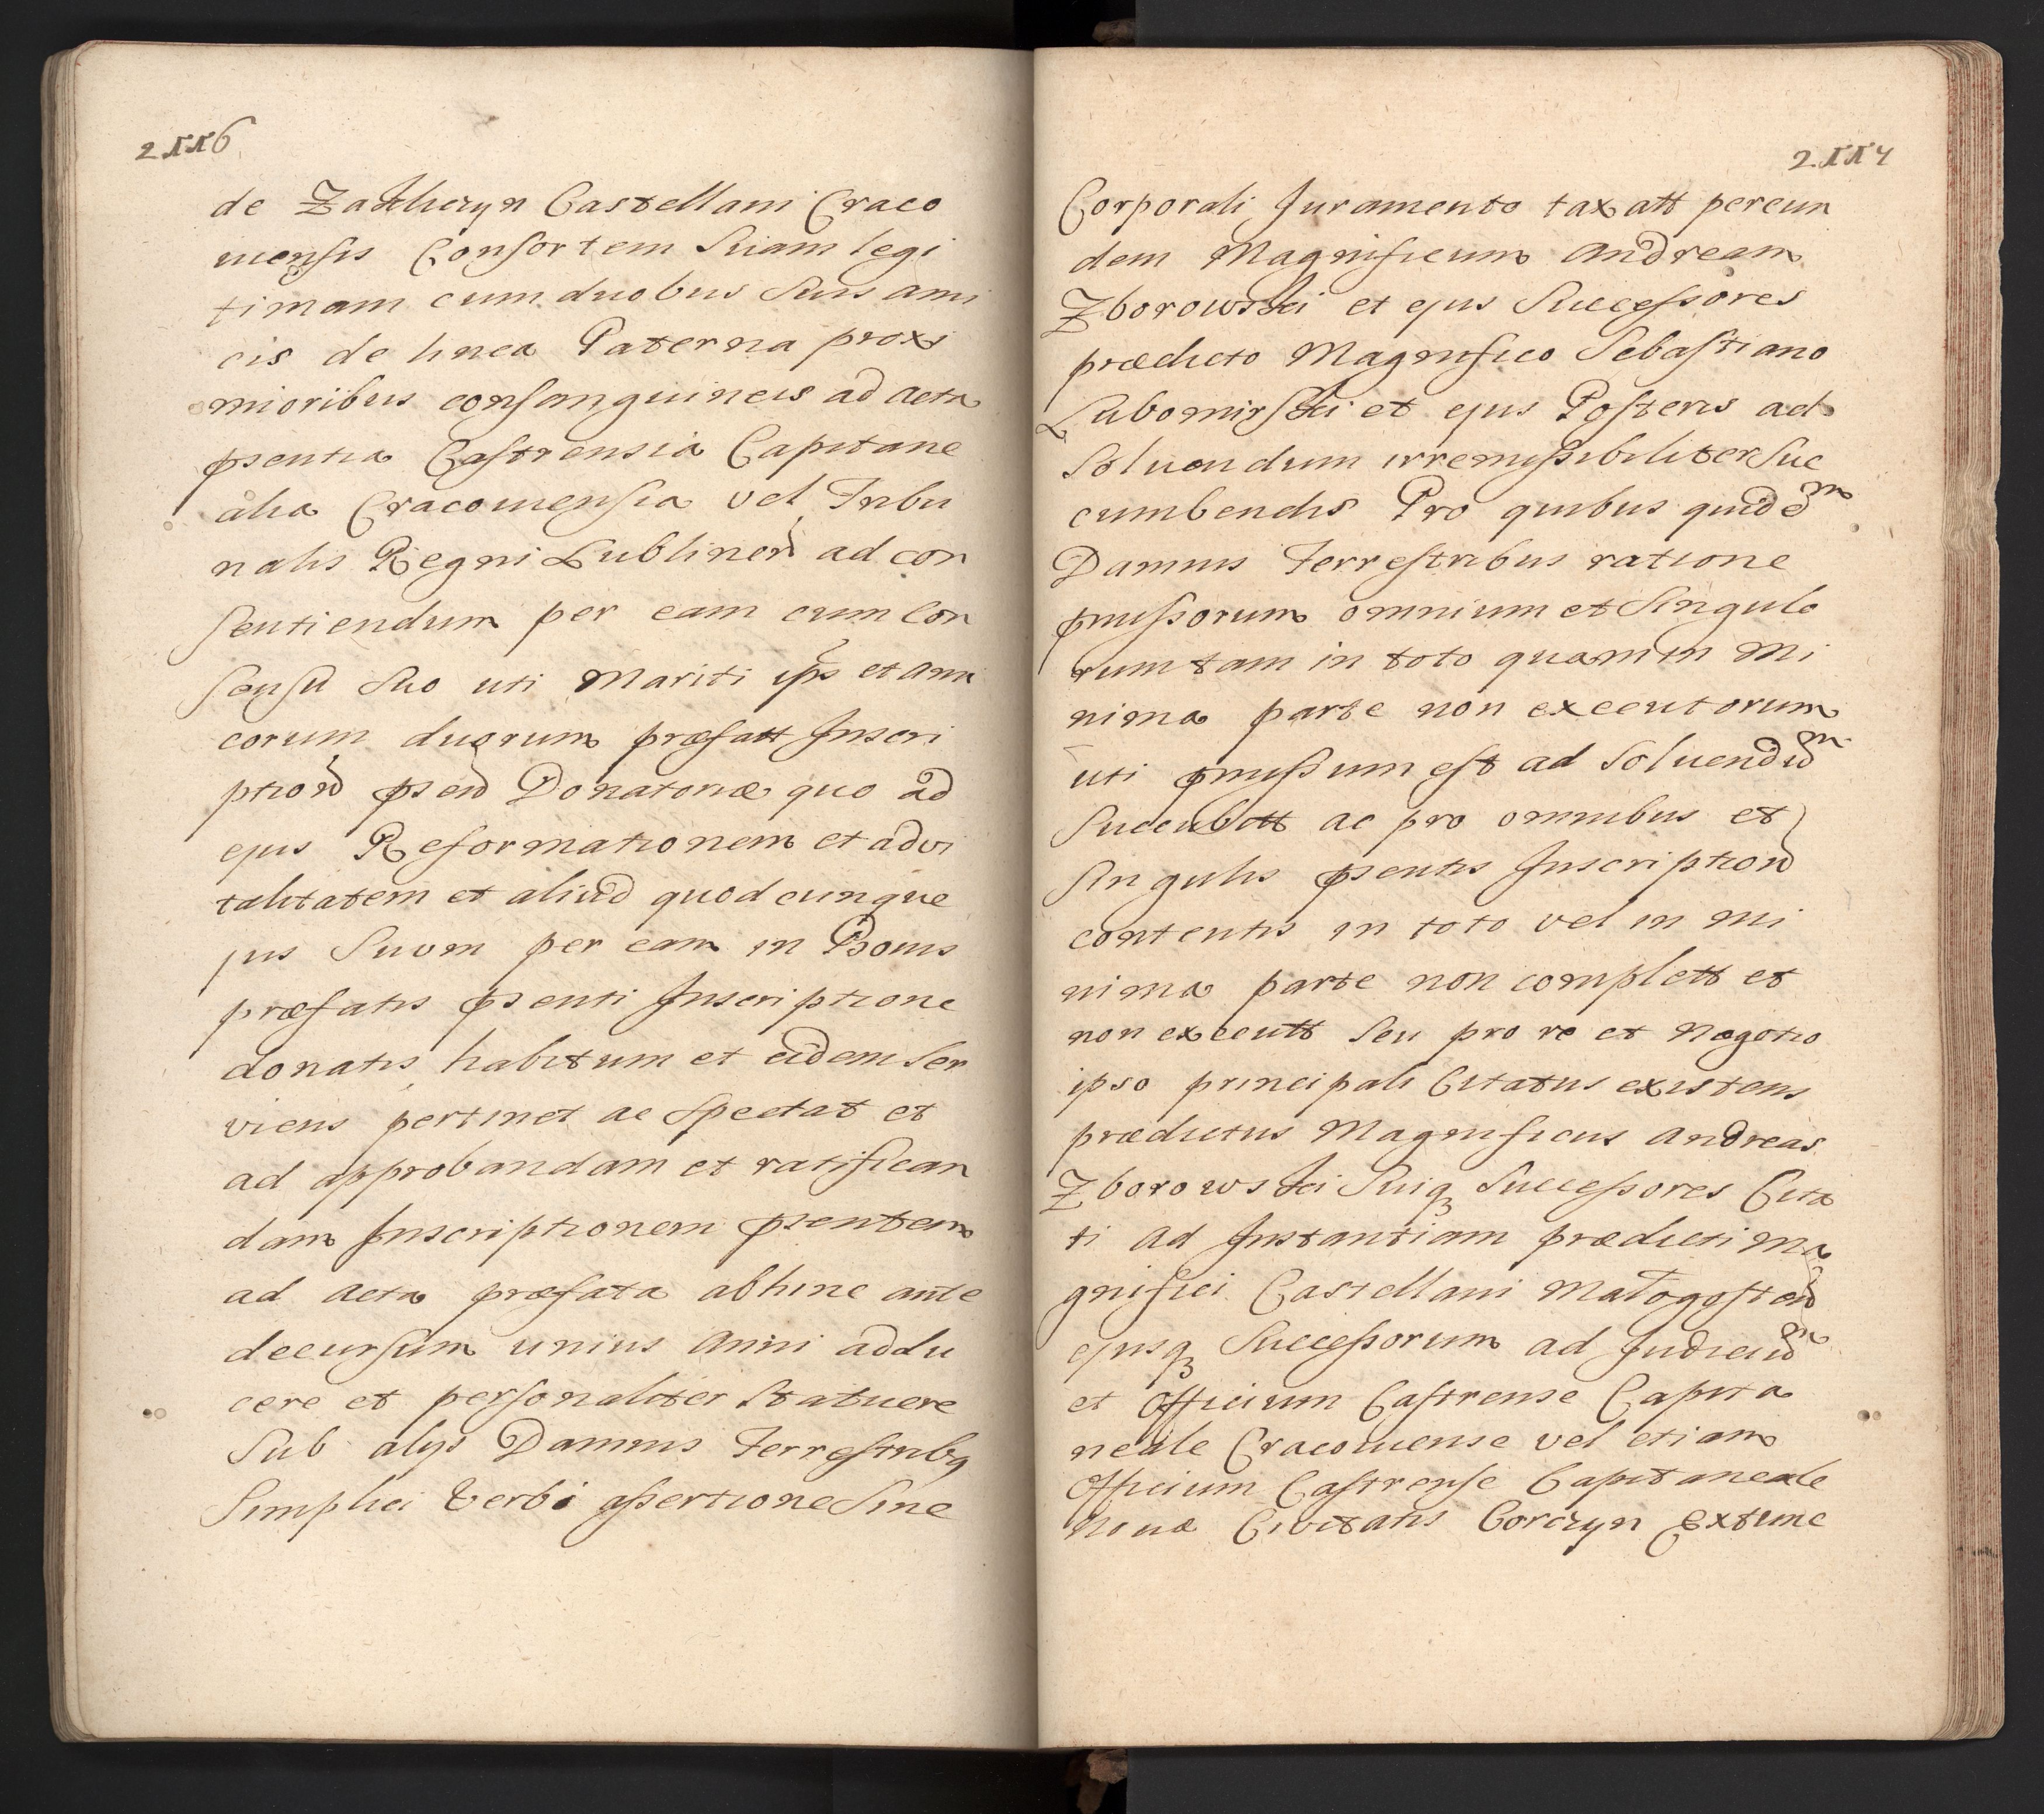 2116
de Zakliczyn Castellani Craco
viensis Consortem Suam legi
timam cum duobus Suis ami
cis de linea Paterna proxi
mioribus consanguineis ad acta
pſentia Caſtrensia Capitane
alia Cracovienſia vel Tribu
nalis Regni Lublinen ad con
ſentiendum per eam cum Con
ſenſu Suo uti Mariti ipſs et ami
corum duorum præfatt Inscri
ption pſen Donatoriæ quo ad
ejus Reformationem et advi
talitatem et aliud quodcunque
jus Suum per eam in Bonis
præfatis pſenti Inscriptione
donatis habitum et eidem Ser
viens pertinet ac Spectat et
ad approbandam et ratifican
dam Inscriptionem pſentem
ad acta præfata abhinc ante
decurſum unius Anni addu
cere et perſonaliter Statuere
Sub alijs Damnis Terreſtribq
Simplici Verbi aſsertione Sine
2117
Corporali Juramento taxatt per eun
dem Magnificum Andream
Zborowski et ejus Succeſsores
prædicto Magnifico Sebaſtiano
Lubomirſki et ejus Poſteris ad
Solvendum irremiſsibiliter Suc
cumbendis Pro quibus quidem
Damnis Terreſtribus ratione
pmiſsorum omnium et Singulo
rum tam in toto quam in Mi
nima parte non executorum
uti pmiſsum eſt ad Solvendum
Succubitt ac pro omnibus et
Singulis pſentis Inscription
contentis in toto vel in mi
nima parte non complett et
non executt Seu pro re et Negotio
ipso principali Citatus existens
prædictus Magnificus Andreas
Zborowski Suiq Succeſsores Cita
ti ad Instantiam prædicti Ma
gnifici Castellani Małogoſten
ejusq Succeſsorum ad Judicium
et Officium Caſtrense Capita
neale Cracoviense vel etiam
Officium Caſtrenſe Capitaneale
Novæ Civitatis Corczyn Extunc